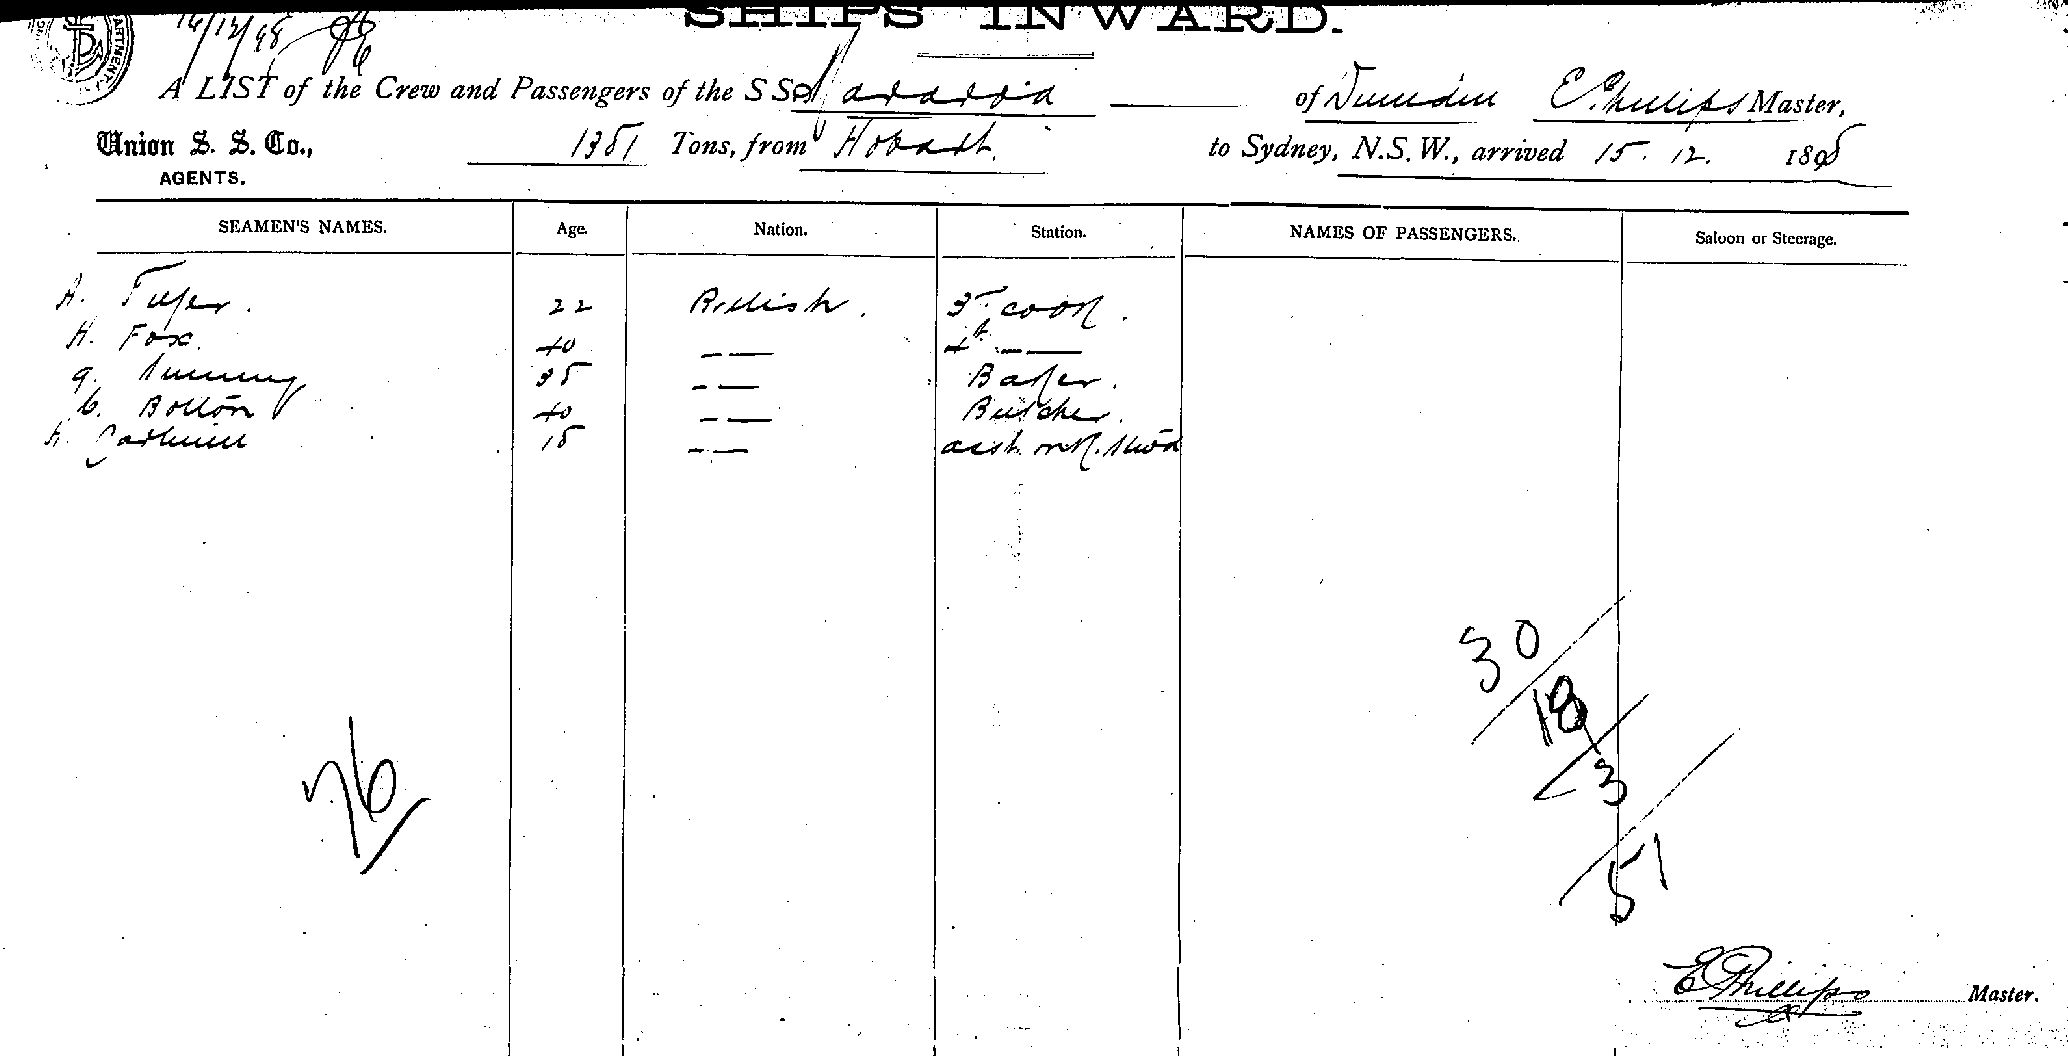 ARTMENT.
16/12/98
SHIPS INWARD.
A LIST of the Crew and Passengers of the SS Wararoa of Dunedin E. Phillips Master,
Union S. S. Co., 1381 Tons, from Hobart. to Sydney, N.S.W., arrived 15. 12. 1898
AGENTS.
SEAMEN'S NAMES. Age. Nation. Station. NAMES OF PASSENGERS. Saloon or Steerage.
A. 22 British. 3rd cook.
H. Fox. 40 — — 4th — —
35 — — Baker.
Bolton 40 — — Butcher.
H. 18 — —
30
18
3
51
76
E Phillips Master.